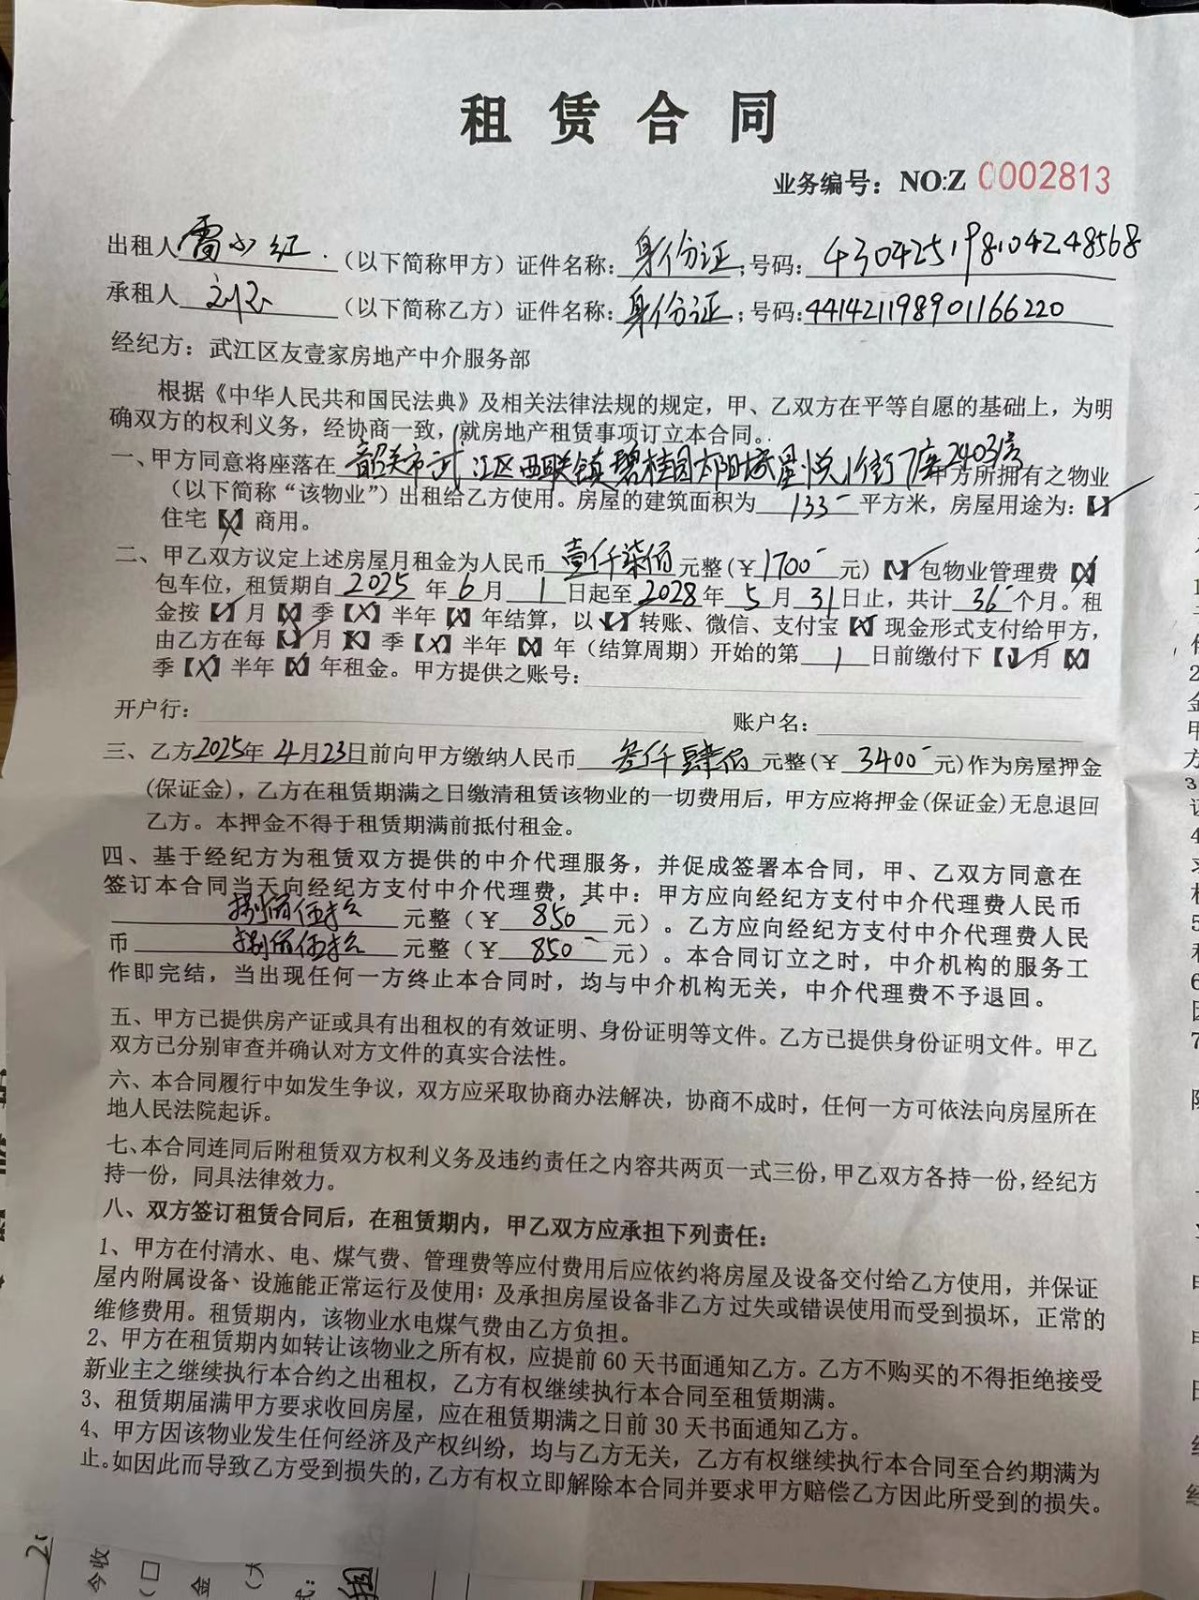 租赁合同
业务编号：NO:Z 0002813
出租人 雷小红 （以下简称甲方）证件名称：身份证；号码：430425198104248568
承租人 刘 （以下简称乙方）证件名称：身份证；号码：441421198901166220
经纪方：武江区友壹家房地产中介服务部
根据《中华人民共和国民法典》及相关法律法规的规定，甲、乙双方在平等自愿的基础上，为明
确双方的权利义务，经协商一致，就房地产租赁事项订立本合同。
一、甲方同意将座落在 韶关市武江区西联镇碧桂园太阳城星悦1街7座2403房 甲方所拥有之物业
（以下简称“该物业”）出租给乙方使用。房屋的建筑面积为 133 平方米，房屋用途为：【√】
住宅【X】商用。
二、甲乙双方议定上述房屋月租金为人民币 壹仟柒佰 元整(￥1700 元)【√】包物业管理费【X】
包车位，租赁期自 2025 年 6 月 1 日起至 2028 年 5 月 31 日止，共计 36 个月。租
金按【√】月【X】季【X】半年【X】年结算，以【√】转账、微信、支付宝【X】现金形式支付给甲方，
由乙方在每【√】月【X】季【X】半年【X】年（结算周期）开始的第 1 日前缴付下【√】月【X】
季【X】半年【X】年租金。甲方提供之账号：
开户行： 账户名：
三、乙方2025年4月23日前向甲方缴纳人民币 叁仟肆佰 元整(￥ 3400 元)作为房屋押金
(保证金)，乙方在租赁期满之日缴清租赁该物业的一切费用后，甲方应将押金(保证金)无息退回
乙方。本押金不得于租赁期满前抵付租金。
四、基于经纪方为租赁双方提供的中介代理服务，并促成签署本合同，甲、乙双方同意在
签订本合同当天向经纪方支付中介代理费，其中：甲方应向经纪方支付中介代理费人民币
捌佰伍拾 元整（￥ 850 元）。乙方应向经纪方支付中介代理费人民
币 捌佰伍拾 元整（￥ 850 元）。本合同订立之时，中介机构的服务工
作即完结，当出现任何一方终止本合同时，均与中介机构无关，中介代理费不予退回。
五、甲方已提供房产证或具有出租权的有效证明、身份证明等文件。乙方已提供身份证明文件。甲乙
双方已分别审查并确认对方文件的真实合法性。
六、本合同履行中如发生争议，双方应采取协商办法解决，协商不成时，任何一方可依法向房屋所在
地人民法院起诉。
七、本合同连同后附租赁双方权利义务及违约责任之内容共两页一式三份，甲乙双方各持一份，经纪方
持一份，同具法律效力。
八、双方签订租赁合同后，在租赁期内，甲乙双方应承担下列责任：
1、甲方在付清水、电、煤气费、管理费等应付费用后应依约将房屋及设备交付给乙方使用，并保证
屋内附属设备、设施能正常运行及使用；及承担房屋设备非乙方过失或错误使用而受到损坏，正常的
维修费用。租赁期内，该物业水电煤气费由乙方负担。
2、甲方在租赁期内如转让该物业之所有权，应提前60天书面通知乙方。乙方不购买的不得拒绝接受
新业主之继续执行本合约之出租权，乙方有权继续执行本合同至租赁期满。
3、租赁期届满甲方要求收回房屋，应在租赁期满之日前30天书面通知乙方。
4、甲方因该物业发生任何经济及产权纠纷，均与乙方无关，乙方有权继续执行本合同至合约期满为
止。如因此而导致乙方受到损失的，乙方有权立即解除本合同并要求甲方赔偿乙方因此所受到的损失。
今收
金